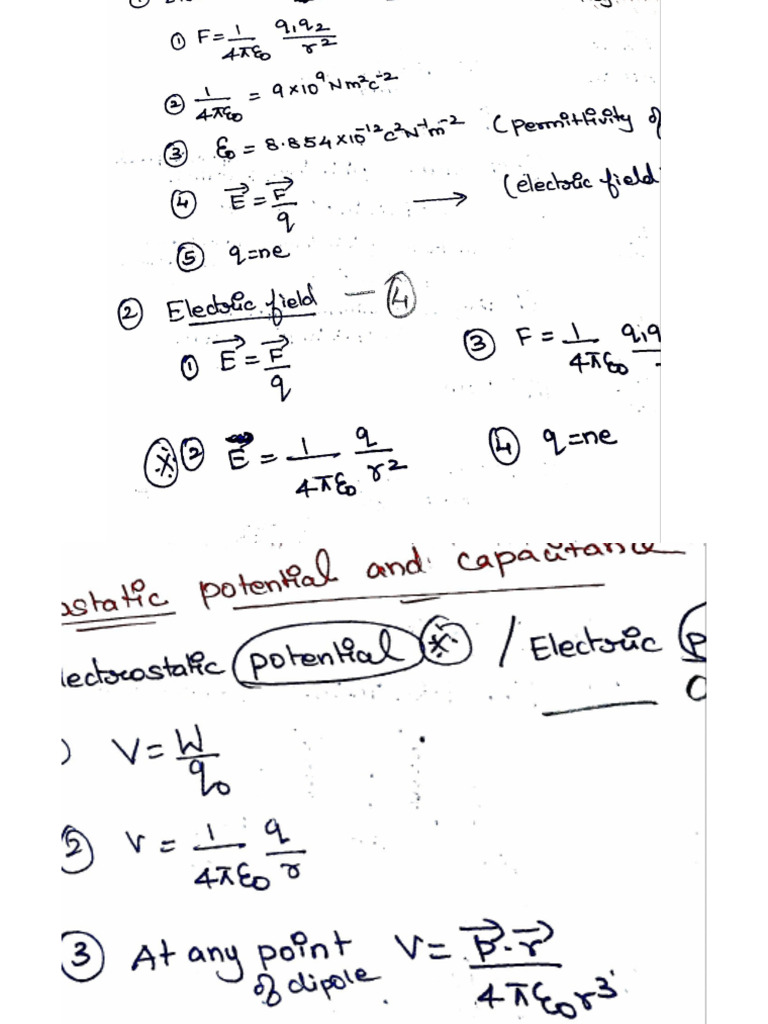 ① F = 1/4πε₀ q₁q₂/r²
② 1/4πε₀ = 9×10⁹Nm²c⁻²
③ ε₀ = 8.854×10⁻¹²c²N⁻¹m⁻² (permittivity of
④ E⃗ = F⃗/q → (electric field
⑤ q=ne
② Electric field — ④
① E⃗ = F⃗/q ③ F = 1/4πε₀ q₁q
② E⃗ = 1/4πε₀ q/r² ④ q=ne
ostatic potential and capacitance
lectrostatic potential * / Electric
) V = W/q₀
② V = 1/4πε₀ q/r
③ At any point of dipole V = P⃗·r⃗/4πε₀r³